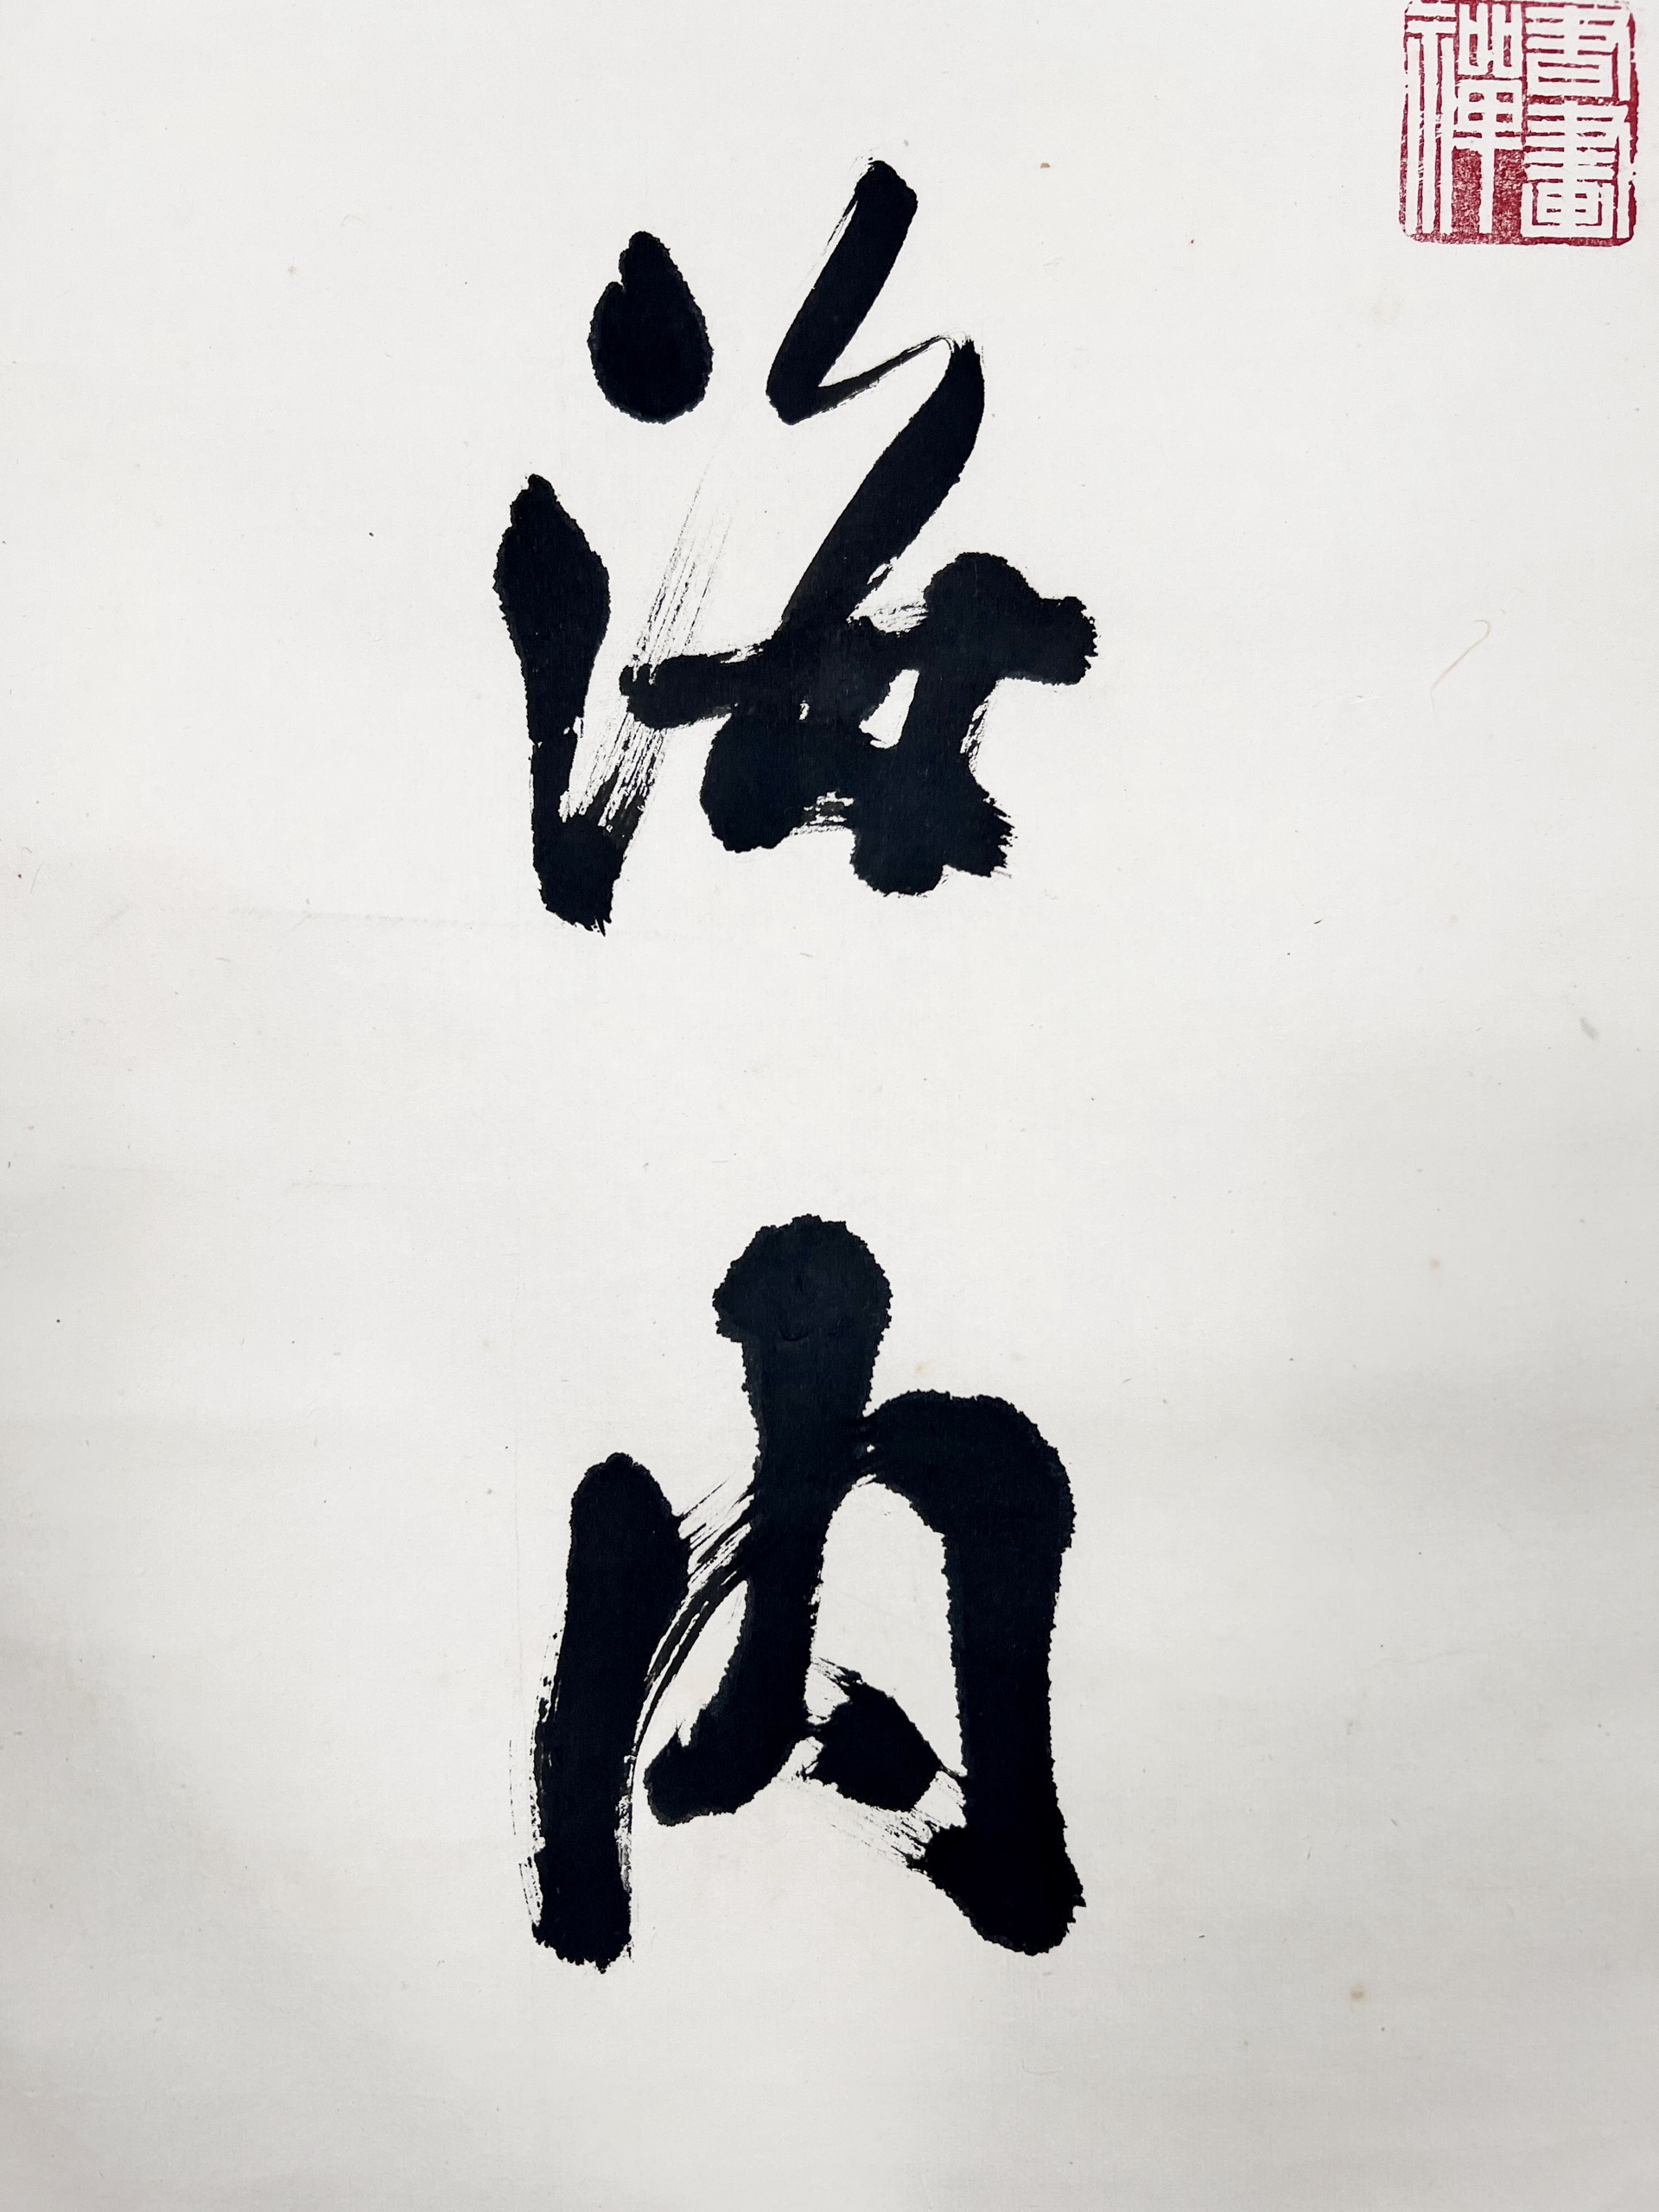 海内
書畫禅